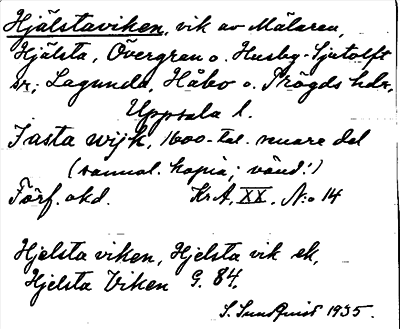 Hjälstaviken, vik av Mälaren,
Hjälsta, Övergran o. Husby-Sjutolft
sr; Lagunda, Håbo o. Trögds hdr,
Uppsala l.
Jasta wijk, 1600-tal. senare del
(sannol. kopia; vänd!)
Förf. okd. Kr.A. XX. N:o 14
Hjelsta viken, Hjelsta vik ek,
Hjelsta Viken G. 84.
S. Sundquist 1935.